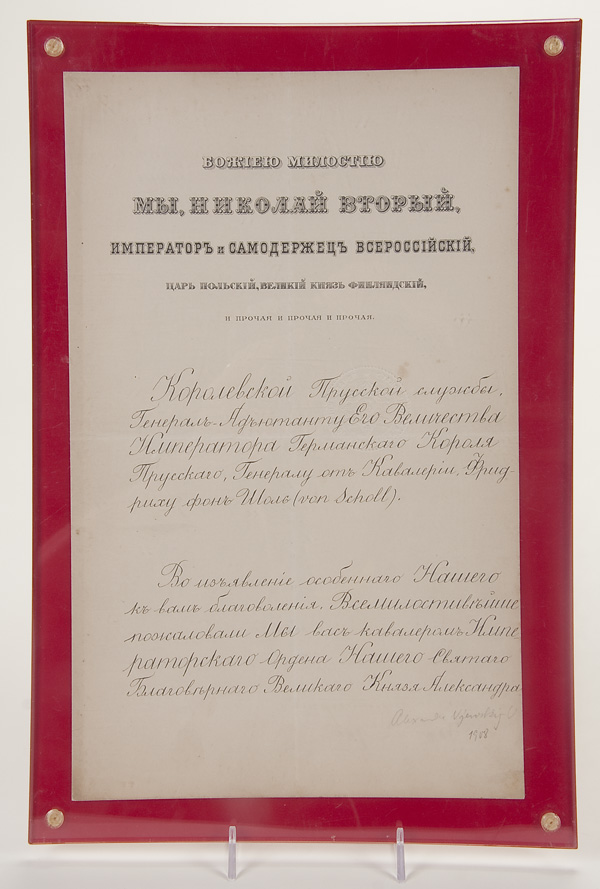 БОЖІЕЮ МИЛОСТІЮ
МЫ, НИКОЛАЙ ВТОРЫЙ,
ИМПЕРАТОРЪ и САМОДЕРЖЕЦЪ ВСЕРОССІЙСКІЙ,
ЦАРЬ ПОЛЬСКІЙ, ВЕЛИКІЙ КНЯЗЬ ФИНЛЯНДСКІЙ,
И ПРОЧАЯ И ПРОЧАЯ И ПРОЧАЯ.
Королевской Прусской службы,
Генералъ-Адъютанту Его Величества
Императора Германскаго Короля
Прусскаго, Генералу отъ Кавалеріи, Фрид-
риху фонъ Шоль (von Scholl).
Во изъявленіе особеннаго Нашего
къ вамъ благоволенія, Всемилостивѣйше
пожаловали Мы васъ кавалеромъ Импе-
раторскаго Ордена Нашего Святаго
Благовѣрнаго Великаго Князя Александра
1908